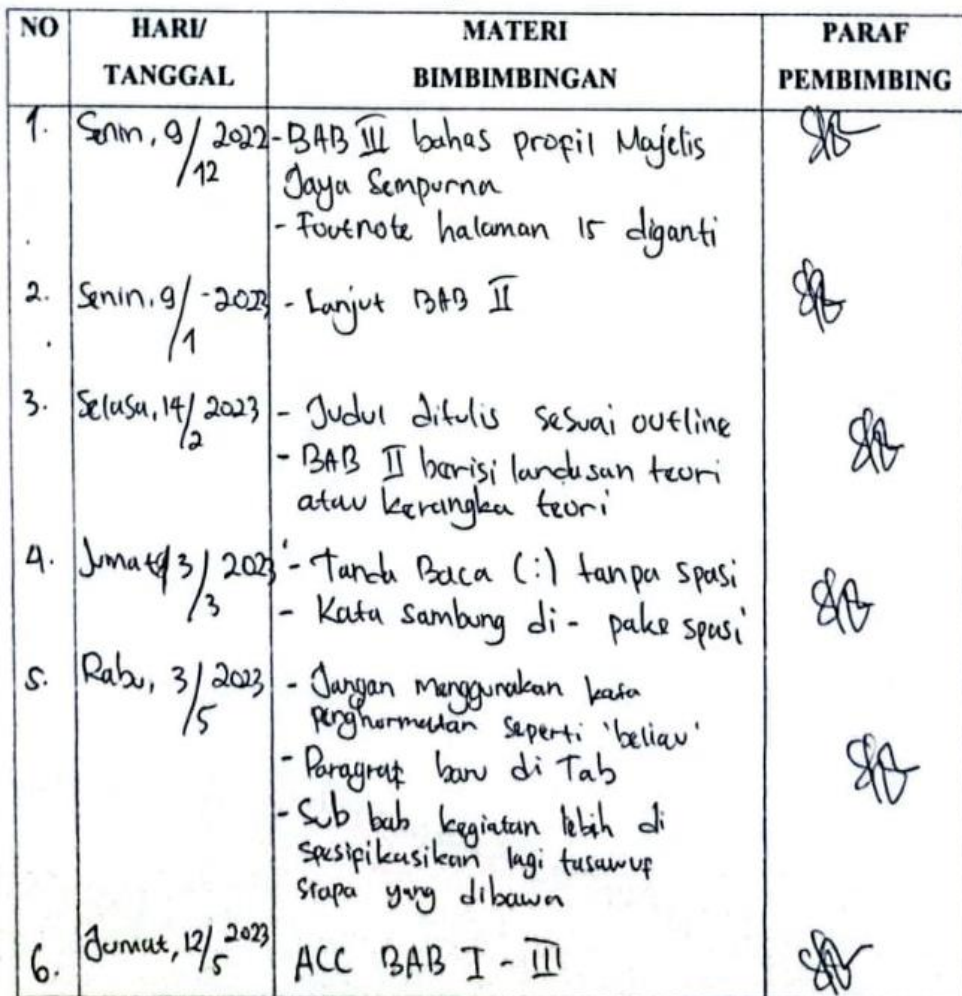 NO HARI/ TANGGAL MATERI BIMBIMBINGAN PARAF PEMBIMBING
1. Senin, 9/12 2022 - BAB III bahas profil Majelis
Jaya Sempurna
- Footnote halaman 15 diganti
2. Senin, 9/1 - 2023 - Lanjut BAB II
3. Selasa, 14/2 2023 - Judul ditulis sesuai outline
- BAB II berisi landasan teori
atau kerangka teori
4. Jumat 3/3 2023 - Tanda Baca (:) tanpa spasi
- Kata sambung di- pake spasi
5. Rabu, 3/5 2023 - Jangan menggunakan kata
penghormatan seperti 'beliau'
- Paragraf baru di Tab
- Sub bab kegiatan lebih di
spesifikasikan lagi tasawuf
siapa yang dibawa
6. Jumat, 12/5 2023 ACC BAB I - III